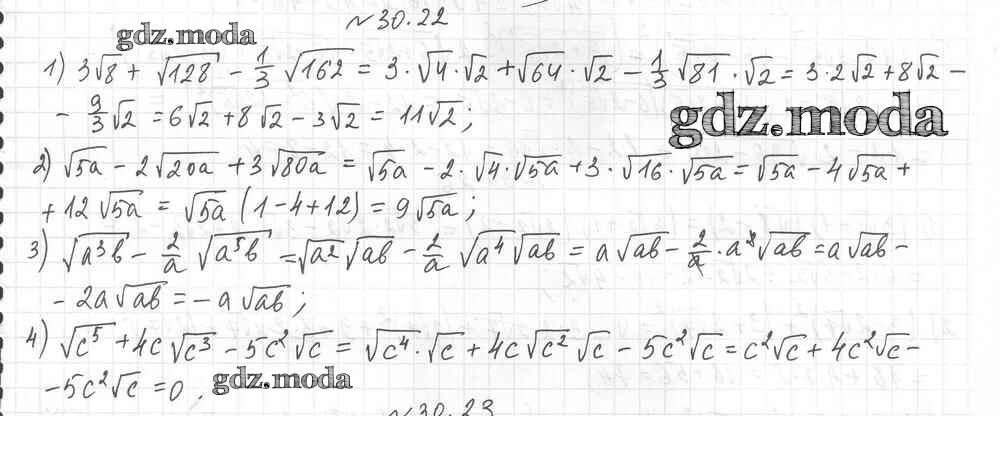 №30.22
gdz.moda
1) 3√8 + √128 - 1/3 √162 = 3·√4·√2 + √64·√2 - 1/3 √81·√2 = 3·2√2 + 8√2 -
- 9/3 √2 = 6√2 + 8√2 - 3√2 = 11√2;
gdz.moda
2) √5a - 2√20a + 3√80a = √5a - 2·√4·√5a + 3·√16·√5a = √5a - 4√5a +
+ 12√5a = √5a (1-4+12) = 9√5a;
3) √a³b - 2/a √a⁵b = √a² √ab - 2/a √a⁴ √ab = a√ab - 2/a · a² √ab = a√ab -
- 2a√ab = -a√ab;
4) √c⁵ + 4c√c³ - 5c²√c = √c⁴·√c + 4c√c² √c - 5c²√c = c²√c + 4c²√c -
- 5c²√c = 0.
gdz.moda
№30.23